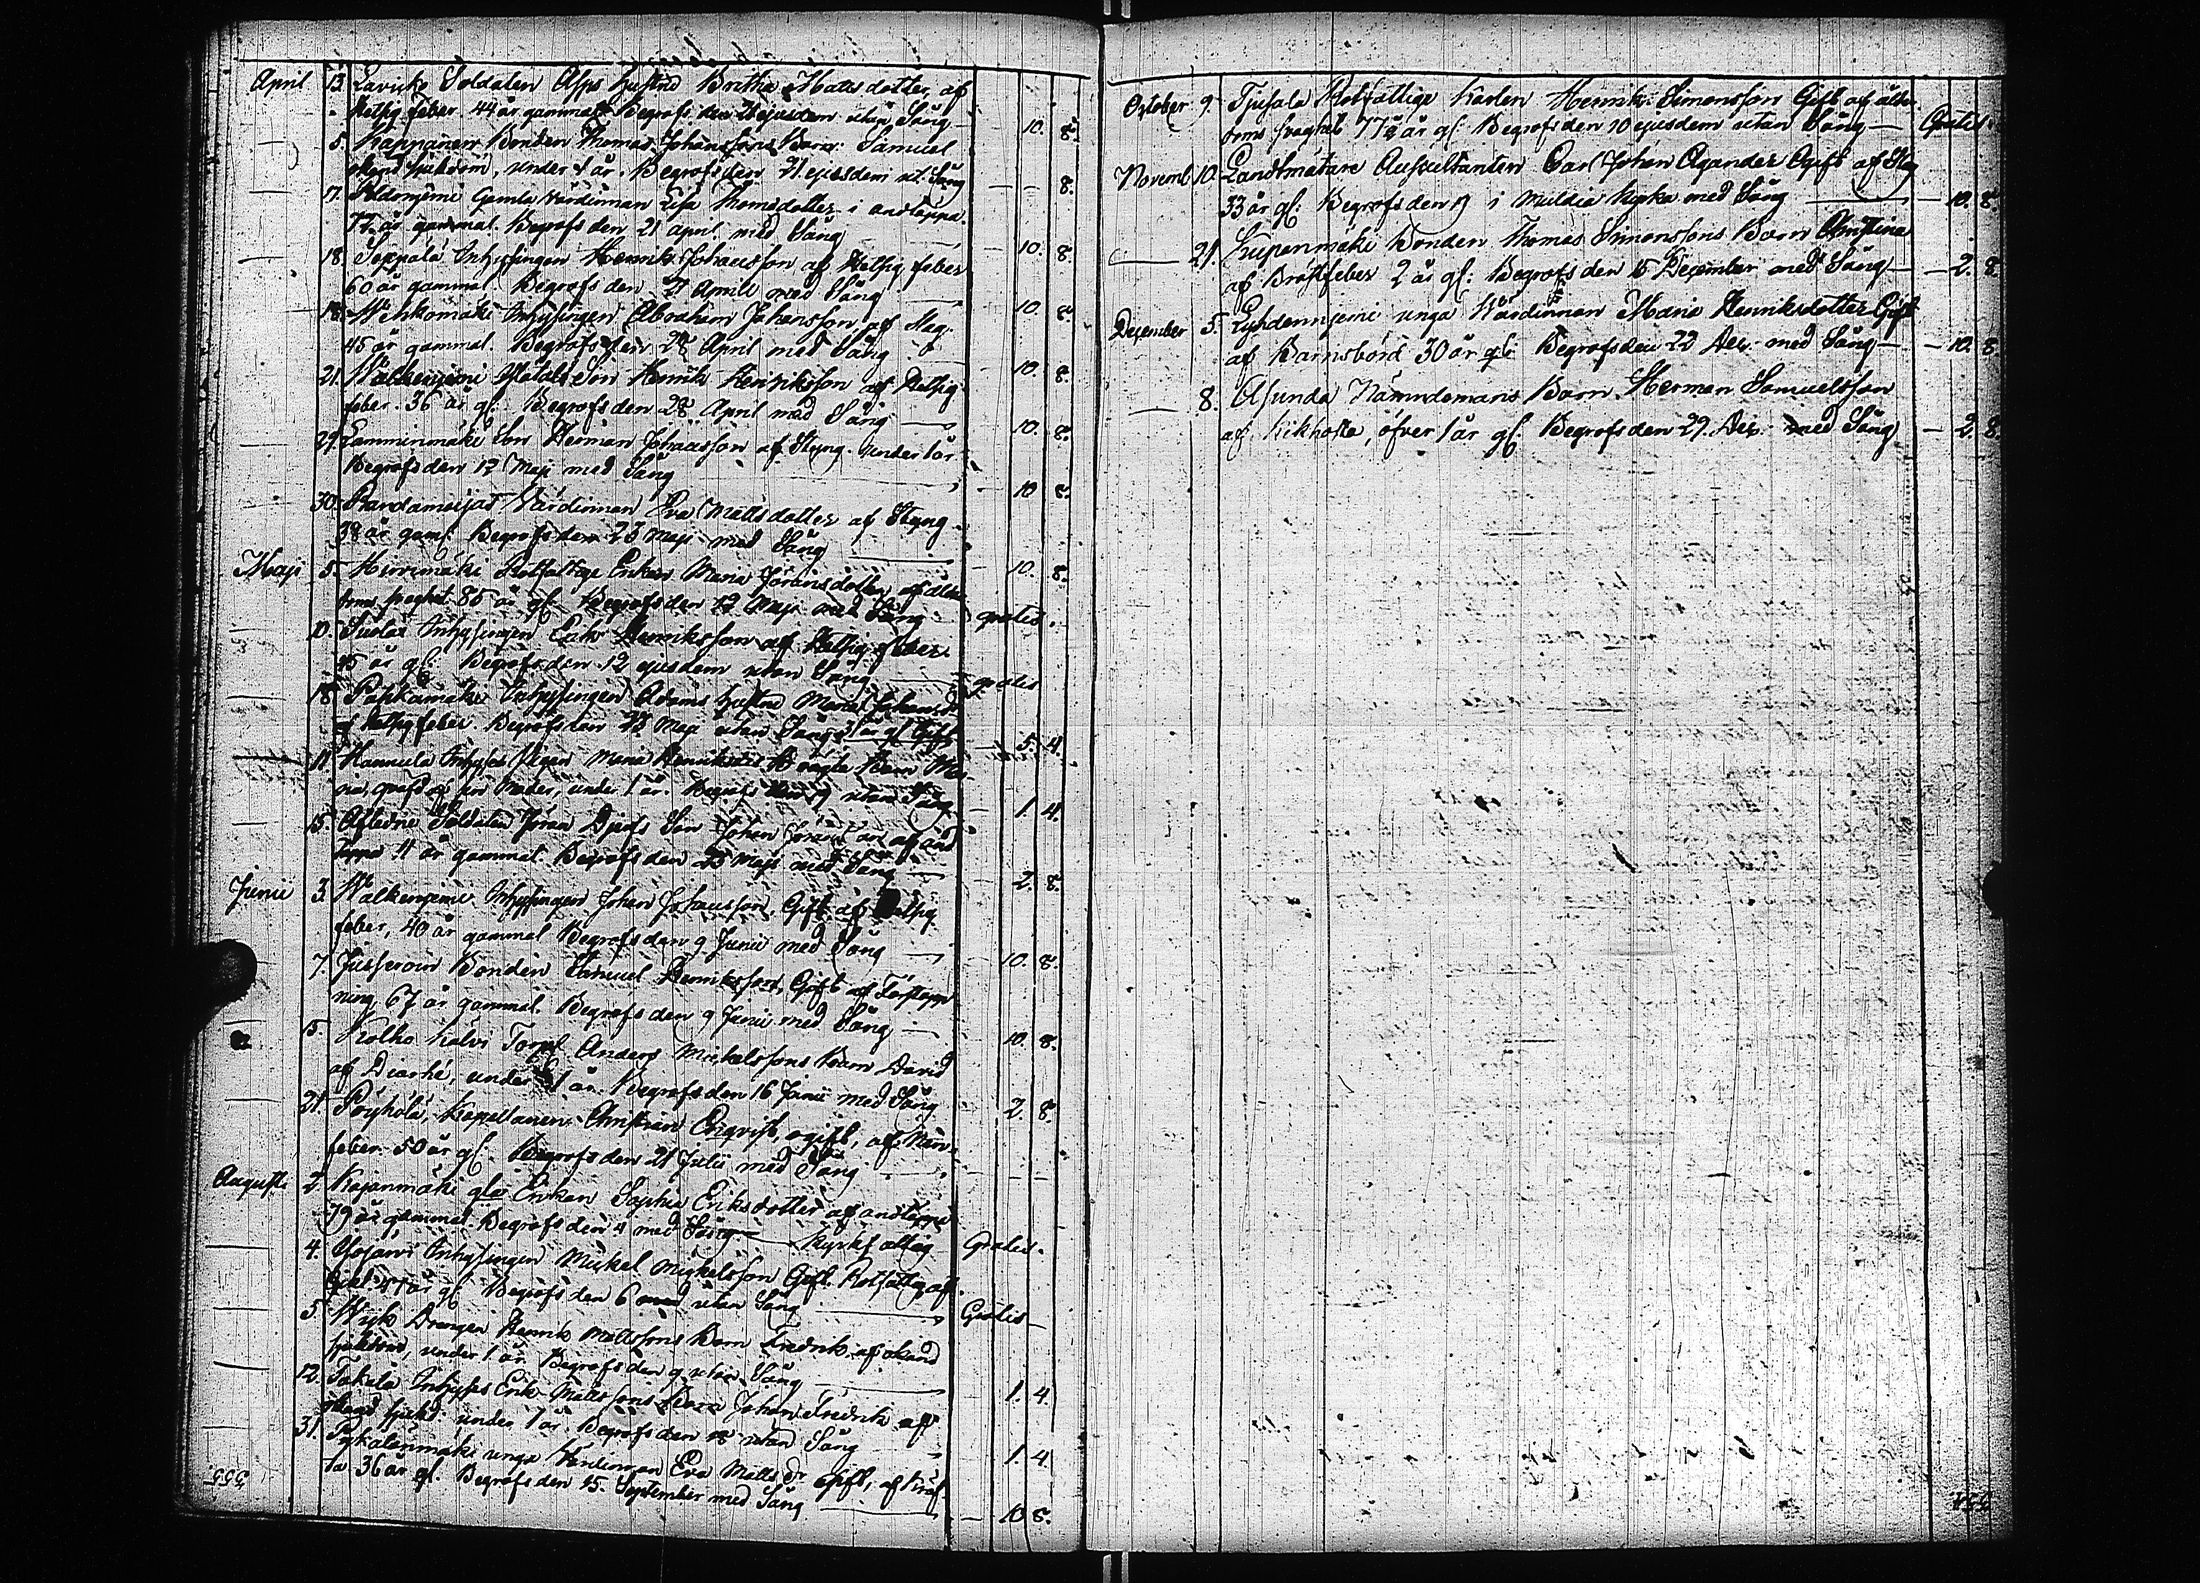 April 13. Lavicko Soldaten Asps hustru Britha Mattsdotter, af
Hetsig feber. 44 år gammal. Begrofs den ejusdem utan Sång — 10. 8.
5. Kappanen Bonden Thomas Johanssons Barn Samuel
okänd sjukdom, under 1 år. Begrofs den 21 ejusdem ut. Sång — 8.
17. gamla Värdinnan Lisa Thomsdotter i andtäppa
77 år gammal. Begrofs den 21 april med Sång — 10. 8.
18. Seppälä Inhysingen Henrik Johansson af Hetsig feber
60 år gammal. Begrofs den 21 Aprill med Sång — 10. 8.
18. Wehkomäki Inhysingen Abraham Johansson af Slag.
45 år gammal. Begrofs den 28 April med Sång — 10. 8.
21. Walkeniemi Son Henrik Henriksson af Hetsig
feber. 36 år gl. Begrofs den 28 April med Sång — 10. 8.
29. Lamminmäki Son Herman Johansson af Styng. under 1 år
Begrofs den 12 Maji med Sång — 10 8.
30. Värdinnan Eva Mattsdotter af Styng
38 år gaml. Begrofs den 23 Maji med Sång — 10. 8.
Maji 5. Hirvimäki Rotfattige Enkan Maria Göransdotter af ålder
doms svaghet. 85 år gl. Begrofs den 12 Maji med Sång gratis.
10. Inhysingen Erik Henriksson af Hetsig feber.
45 år gl. Begrofs den 12 ejusdem utan Sång — gratis
18. Inhysingen Adams hustru Maria Johansd:
af Hetsig feber. Begrofs den 23 Maji utan Sång år gl Gift — 5. 4.
11. Hannula Inhyses Pigan Maria Henriksd: oägta Barn Ma-
ria, qvafd af sin Moder, under 1 år. Begrofs den 19 utan Sång — 1. 4.
15. Afledne Soldaten Jöran Djerfs Son Johan Göransson af and
täppa 11 år gammal. Begrofs den 23 Maji med Sång — 2. 8.
Junii 3. Walkeniemi Inhysingen Johan Johansson, Gift af Hetsig
feber, 40 år gammal Begrofs den 9 Junii med Sång — 10. 8.
7. Jusseroin Bonden Samuel Henriksson, Gift af Förstopp
ning 67 år gammal. Begrofs den 9 Junii med Sång — 10. 8.
15. Kolho Kalvi Torp. Anders Mickelssons Barn David
af Diarhé, under 1 år. Begrofs den 16 Junii med Sång 2. 8.
21. Pöyhölä, Kapellanen Christian Engvist, ogift, af Nerv-
feber. 50 år gl. Begrofs den 21 Julii med Sång — — —
August. 2. Kajanmäki gla Enkan Sophia Eriksdotter af andtäppa
79 år gammal. Begrofs den 4 med Sång — Kyrkfattig Gratis.
4. Inhysingen Mickel Mickelsson Gift. Rotfattig af
år gl. Begrofs den 6 utan Sång — Gratis
5. Wijk Drängen Henrik Mattssons Barn Fredrik af okänd
sjukdom, under 1 år. Begrofs den 9 utan Sång — 1. 4.
12. Takala Inhyses Erik Mattssons Barn Johan Fredrik af
okänd sjukd. under 1 år. Begrofs den 18 utan Sång 1. 4.
31. Pykälänmäki unga Värdinnan Eva Matts dr Gift, af Kräf
ta 36 år gl. Begrofs den 15. September med Sång — 10 8.
555.
October 9. Tjusala Rotfattige Karlen Henrik Simonsson Gift af ålder-
doms svaghet 77 år gl. Begrofs den 10 ejusdem utan Sång — Gratis.
Novemb. 10. Landtmätare Auscultanten Carl Johan Agander Ogift af Slag
33 år gl. Begrofs den 19 i Muldia Kyrka med Sång — 10. 8.
— 21. Kupenmäki Bonden Thomas Simonssons Barn Christina
af Bröstfeber 2 år gl: Begrofs den 15 December med Sång — 2. 8.
December 5. Lyhdenniemi unga Värdinnan Maria Henriksdotter Gift
af Barnsbörd 30 år gl: Begrofs den 22 Dec. med Sång — 10. 8.
— 8. Asunda Nämndemans Barn Herman Samuelsson
af Kikhosta, öfver 1 år gl. Begrofs den 29. Dec. med Sång — 2. 8